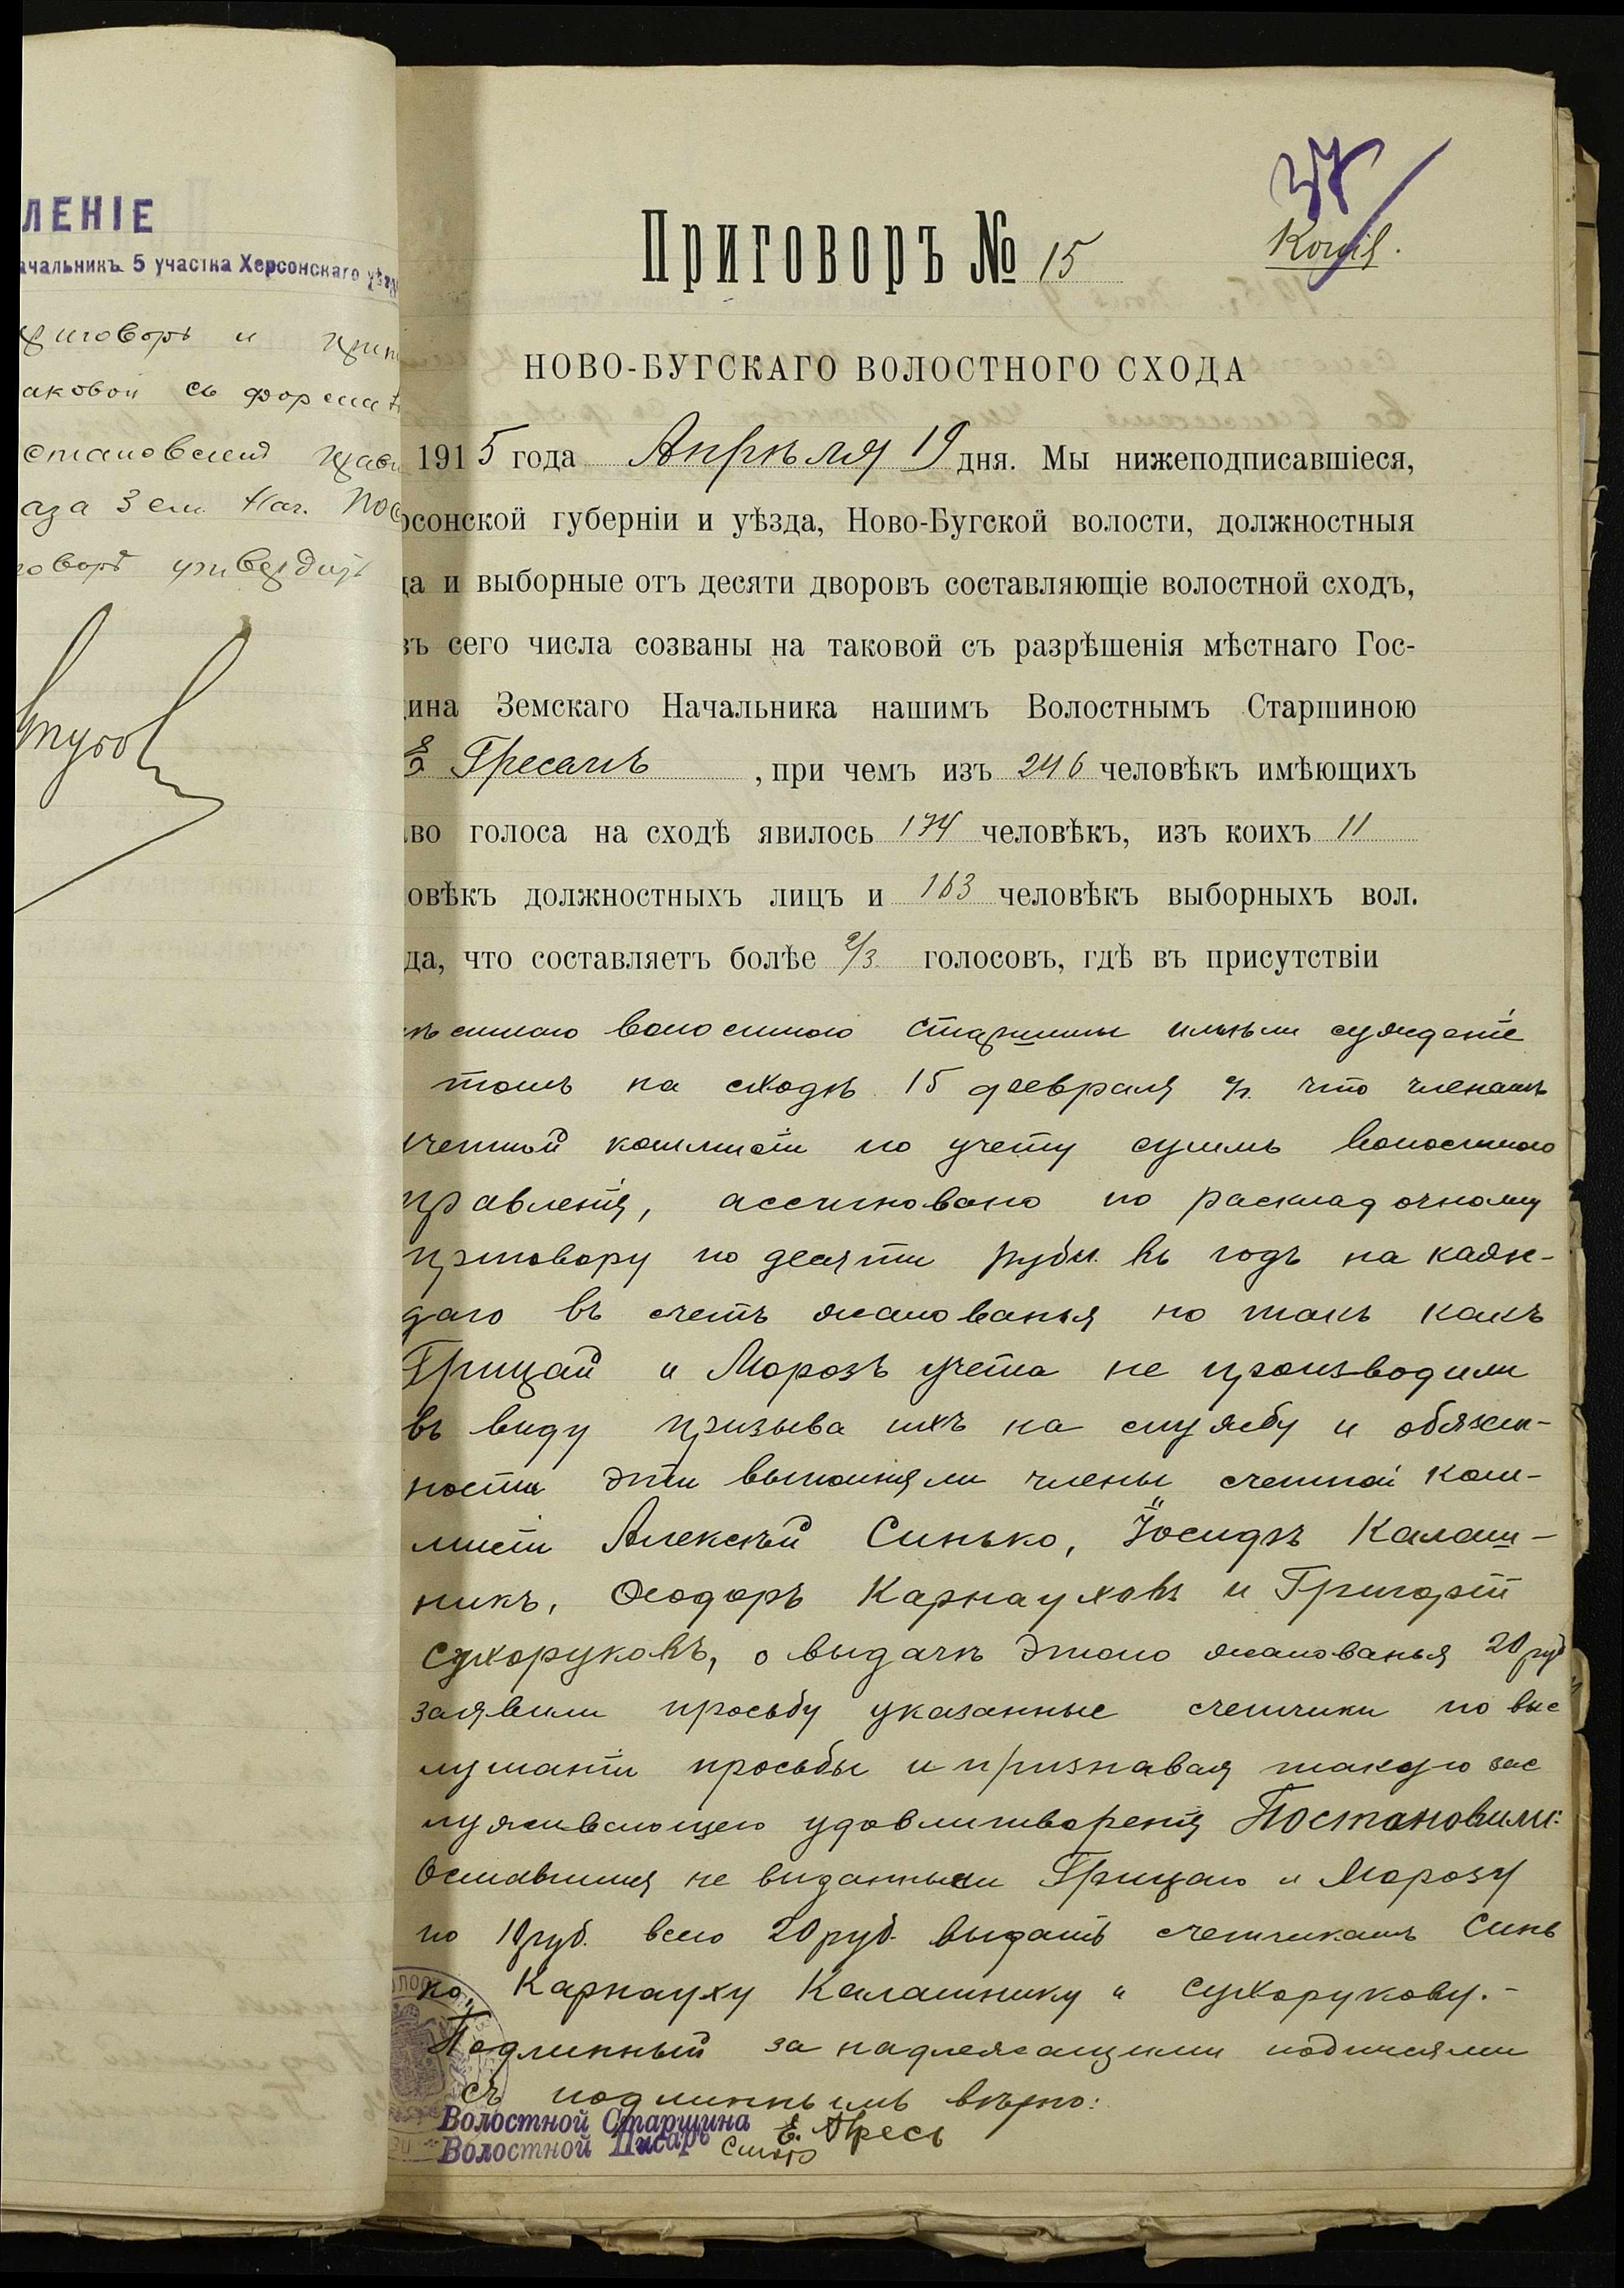 ЛЕНІЕ
ачальникъ 5 участка Херсонскаго уѣзд
риговоръ и
аковой съ
становленія
аза Зем. Нач. Пос
говоръ утвердить
37
Копія.
Приговоръ № 15
НОВО-БУГСКАГО ВОЛОСТНОГО СХОДА
1915 года Апрѣля 19 дня. Мы нижеподписавшіеся,
рсонской губерніи и уѣзда, Ново-Бугской волости, должностныя
ца и выборные отъ десяти дворовъ составляющіе волостной сходъ,
въ сего числа созваны на таковой съ разрѣшенія мѣстнаго Гос-
дина Земскаго Начальника нашимъ Волостнымъ Старшиною
Е Гресемъ, при чемъ изъ 246 человѣкъ имѣющихъ
аво голоса на сходѣ явилось 174 человѣкъ, изъ коихъ 11
овѣкъ должностныхъ лицъ и 163 человѣкъ выборныхъ вол.
да, что составляетъ болѣе 2/3 голосовъ, гдѣ въ присутствіи
волостного старшины имѣли сужденіе
томъ на сходѣ 15 февраля с/г. что членамъ
счетной коммисіи по учету суммъ волостного
правленія, ассигновано по раскладочному
приговору по десяти рубл. въ годъ на каж-
даго въ счетъ жалованья но такъ какъ
Грицай и Морозъ учета не производили
въ виду призыва ихъ на службу и обязан-
ности эти выполняли члены счетной ком-
мисіи Алексѣй Синько, Іосифъ Калаш-
никъ, Ѳеодоръ Карнауховъ и Григорій
Сухоруковъ, о выдачѣ этого жалованья 20 руб
заявили просьбу указанные счетчики по выс
лушаніи просьбы и признавая такую зас
луживающею удовлитворенія Постановили:
Оставшіяся не выданными Грицаю и Морозу
по 10 руб. всего 20 руб. выдать счетчикамъ Синь
ко, Карнауху Калашнику и Сухорукову.-
Подлинный за надлежащими подписями
Съ подлиннымъ вѣрно:
Волостной Старшина Е. Гресь
Волостной Писарь